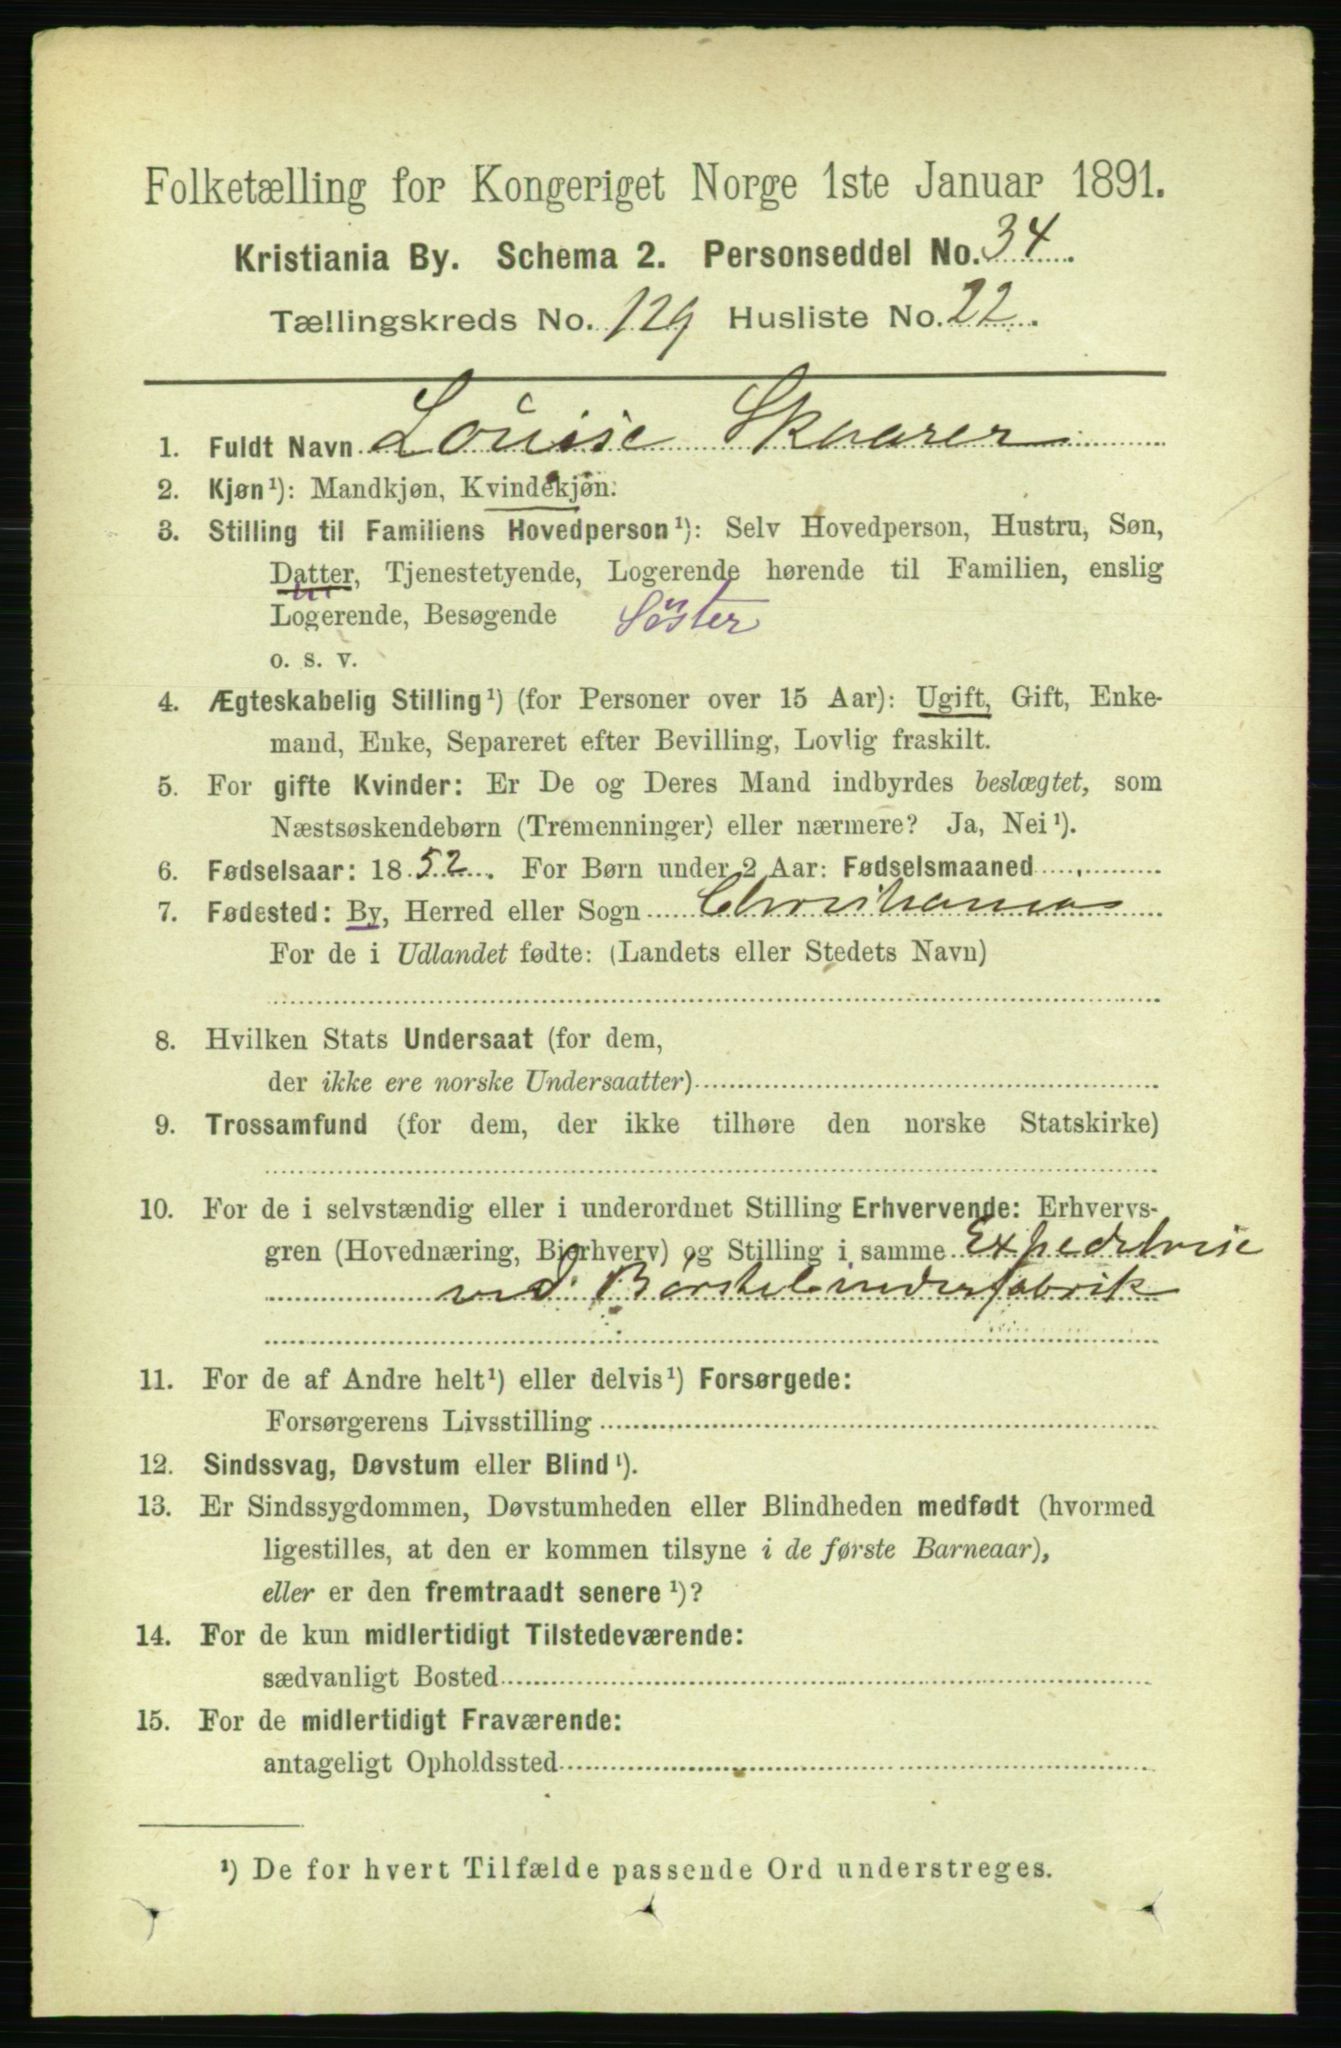 Folketælling for Kongeriget Norge 1ste Januar 1891.
Kristiania By. Schema 2. Personseddel No. 34
Tællingskreds No. 129 Husliste No. 22
1. Fuldt Navn Louise Skaarer
2. Kjøn¹): Mandkjøn, Kvindekjøn.
3. Stilling til Familiens Hovedperson¹): Selv Hovedperson, Hustru, Søn,
Datter, Tjenestetyende, Logerende hørende til Familien, enslig
Logerende, Besøgende Söster
o. s. v.
4. Ægteskabelig Stilling¹) (for Personer over 15 Aar): Ugift, Gift, Enke-
mand, Enke, Separeret efter Bevilling, Lovlig fraskilt.
5. For gifte Kvinder: Er De og Deres Mand indbyrdes beslægtet, som
Næstsøskendebørn (Tremenninger) eller nærmere? Ja, Nei¹).
6. Fødselsaar: 1852. For Børn under 2 Aar: Fødselsmaaned
7. Fødested: By, Herred eller Sogn Christiania
For de i Udlandet fødte: (Landets eller Stedets Navn)
8. Hvilken Stats Undersaat (for dem,
der ikke ere norske Undersaatter)
9. Trossamfund (for dem, der ikke tilhøre den norske Statskirke)
10. For de i selvstændig eller i underordnet Stilling Erhvervende: Erhvervs-
gren (Hovednæring, Bierhverv) og Stilling i samme Expeditrise
ved Börstebinderfabrik
11. For de af Andre helt¹) eller delvis¹) Forsørgede:
Forsørgerens Livsstilling
12. Sindssvag, Døvstum eller Blind¹).
13. Er Sindssygdommen, Døvstumheden eller Blindheden medfødt (hvormed
ligestilles, at den er kommen tilsyne i de første Barneaar),
eller er den fremtraadt senere¹)?
14. For de kun midlertidigt Tilstedeværende:
sædvanligt Bosted
15. For de midlertidigt Fraværende:
antageligt Opholdssted
¹) De for hvert Tilfælde passende Ord understreges.